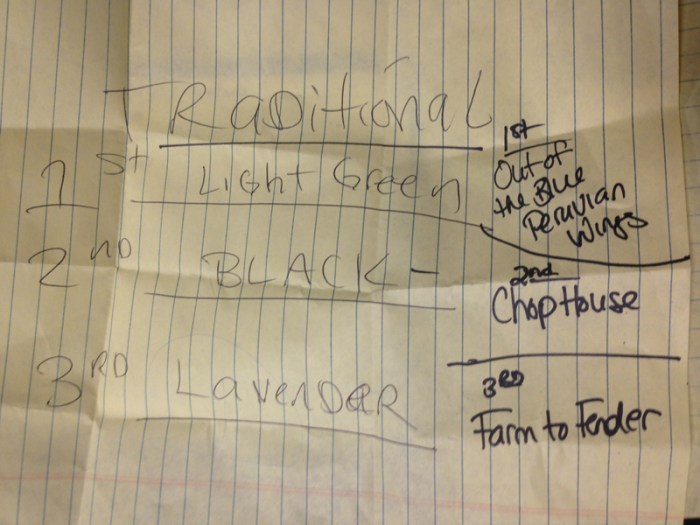 TRaDitional
1st Light Green
2ND BLACK -
3RD LavenDeR
1st
Out of
the Blue
Peruvian
Wings
2nd
Chop House
3RD
Farm to Fender